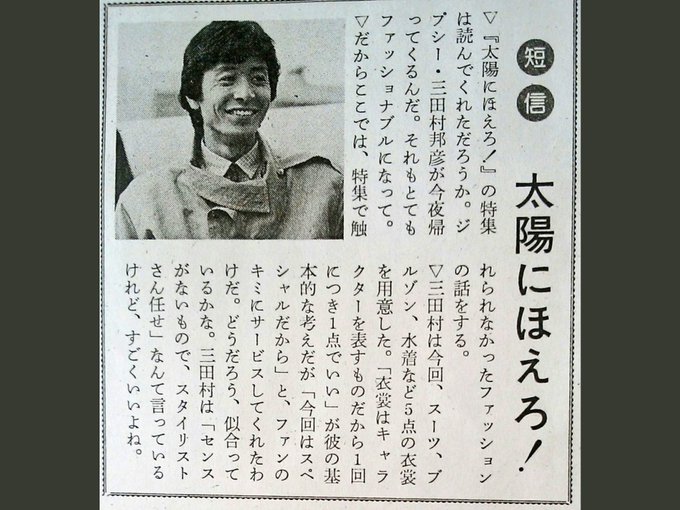 短信
太陽にほえろ！
▽『太陽にほえろ！』の特集
は読んでくれただろうか。ジ
プシー・三田村邦彦が今夜帰
ってくるんだ。それもとても
ファッショナブルになって。
▽だからここでは、特集で触
れられなかったファッション
の話をする。
▽三田村は今回、スーツ、ブ
ルゾン、水着など５点の衣裳
を用意した。「衣裳はキャラ
クターを表すものだから１回
につき１点でいい」が彼の基
本的な考えだが「今回はスペ
シャルだから」と、ファンの
キミにサービスしてくれたわ
けだ。どうだろう、似合って
いるかな。三田村は「センス
がないもので、スタイリスト
さん任せ」なんて言っている
けれど、すごくいいよね。